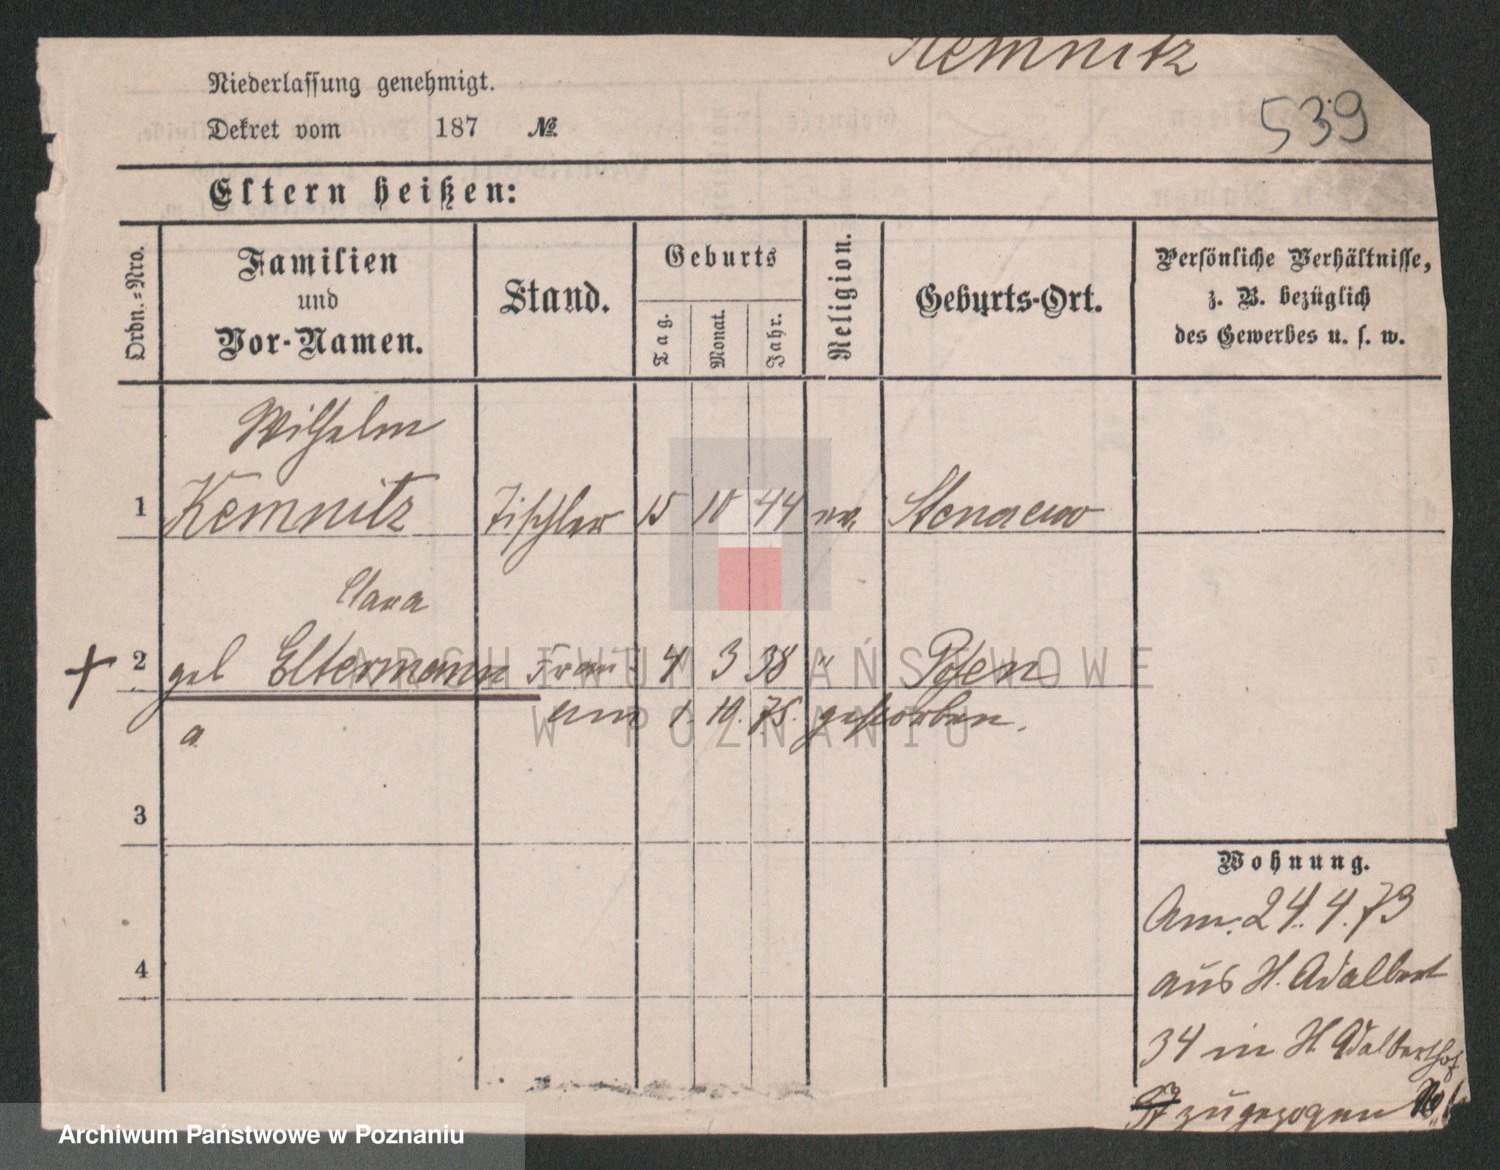 Kemnitz
539
Niederlassung genehmigt.
Dekret vom 187 №
Eltern heißen:
Ordn.=Nro.
Familien
und
Vor-Namen.
Stand.
Geburts
Tag.
Monat.
Jahr.
Religion.
Geburts-Ort.
Persönliche Verhältnisse,
z. B. bezüglich
des Gewerbes u. s. w.
Wilhelm
1 Kemnitz Tischler 15 10 44 ev. 
Clara
+ 2 geb Eltermann Frau 4 3 38 " Posen
a
am 1. 10. 75. gestorben.
3
4
Wohnung.
Am. 24. 4. 73
aus St. Adalbert
34 in St. Adalberthof
zugezogen No
ARCHIWUM PAŃSTWOWE
W POZNANIU
Archiwum Państwowe w Poznaniu